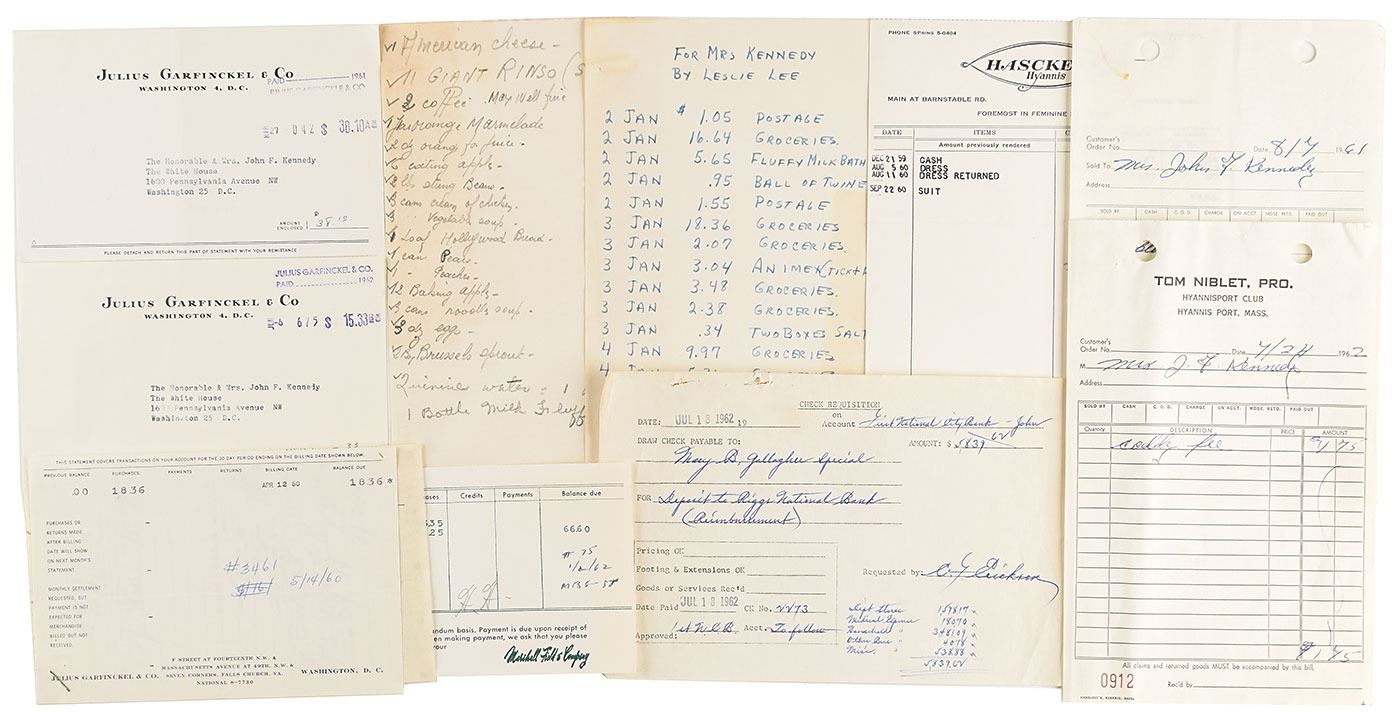 JULIUS GARFINCKEL & CO
WASHINGTON 4, D. C.
PAID 1961
JULIUS GARFINCKEL & CO.
27 042 $ 38.10
The Honorable & Mrs. John F. Kennedy
The White House
1600 Pennsylvania Avenue NW
Washington 25 D.C.
AMOUNT
ENCLOSED 38.10
PLEASE DETACH AND RETURN THIS PART OF STATEMENT WITH YOUR REMITTANCE
JULIUS GARFINCKEL & CO.
PAID 1962
JULIUS GARFINCKEL & CO
WASHINGTON 4, D. C.
-6 675 $ 15.33
The Honorable & Mrs. John F. Kennedy
The White House
Pennsylvania Avenue NW
Washington 25 D.C.
THIS STATEMENT COVERS TRANSACTIONS ON YOUR ACCOUNT FOR THE 30 DAY PERIOD ENDING ON THE BILLING DATE SHOWN BELOW.
PREVIOUS BALANCE PURCHASES PAYMENTS RETURNS BILLING DATE BALANCE DUE
.00 18.36 APR 12 60 18.36 *
PURCHASES OR
RETURNS MADE
AFTER BILLING
DATE WILL SHOW
ON NEXT MONTH'S
STATEMENT.
#3461
5/14/60
MONTHLY SETTLEMENT
REQUESTED, BUT
PAYMENT IS NOT
EXPECTED FOR
MERCHANDISE
BILLED BUT NOT
RECEIVED.
F STREET AT FOURTEENTH N.W. &
MASSACHUSETTS AVENUE AT 49TH, N.W. &
JULIUS GARFINCKEL & CO. SEVEN CORNERS, FALLS CHURCH, VA. WASHINGTON, D. C.
NATIONAL 8-7730
American cheese -
1 GIANT RINSO (S
2 coffee Maxwell fine
orange Marmelade
2 dz orang for juice -
6 eating appl -
2 lbs string Beans -
3 cans cream of chicken -
3 " Vegetable soup -
1 Loaf Hollywood Bread -
1 can Pears -
1 - Peaches -
12 Baking appl -
3 cans noodls soup -
3 dz egg -
Brussels sprout -
Quinine water = 1
1 Bottle Milk
Credits Payments Balance due
6.35
25 66.60
# 75
1/2/62
ndum basis. Payment is due upon receipt of
en making payment, we ask that you please
your
Marshall Field & Company
FOR MRS KENNEDY
BY LESLIE LEE
2 JAN $ 1.05 POSTAGE
2 JAN 16.64 GROCERIES.
2 JAN 5.65 FLUFFY MILK BATH
2 JAN .95 BALL OF TWINE
2 JAN 1.55 POSTAGE
3 JAN 18.36 GROCERIES
3 JAN 2.07 GROCERIES.
3 JAN 3.04 ANIMEX (TICK +
3 JAN 3.48 GROCERIES.
3 JAN 2.38 GROCERIES.
3 JAN .34 TWO BOXES SALT
4 JAN 9.97 GROCERIES
4 JAN
PHONE SPRING 5-0404
HASCKE
Hyannis
MAIN AT BARNSTABLE RD.
FOREMOST IN FEMININE
DATE ITEMS C
Amount previously rendered
DEC 21 59 CASH
AUG 5 60 DRESS
AUG 11 60 DRESS RETURNED
SEP 22 60 SUIT
CHECK REQUISITION
on
DATE: JUL 18 1962 19 Account First National City Bank - John
DRAW CHECK PAYABLE TO: AMOUNT: $ 5,839.62
Mary B. Gallagher Special
FOR Deposit to Riggs National Bank
(Reimbursement)
Pricing OK
Footing & Extensions OK
Goods or Services Rec'd
Requested by:
Date Paid JUL 18 1962 CK No. 2273
Approved: 1st N.C.B Acct. To follow
Dept Stores 1598.17
180.70
Household " 3481.09
Other Bus "
Misc. " 538.88
5,839.62
Customer's
Order No. Date 8/7 1961
Sold To Mrs. John F. Kennedy
Address
SOLD BY CASH C.O.D. CHARGE ON ACCT. MDSE. RETD. PAID OUT
TOM NIBLET, PRO.
HYANNISPORT CLUB
HYANNIS PORT, MASS.
Customer's
Order No. Date 7/24 1962
M Mrs J. F. Kennedy
Address
SOLD BY CASH C.O.D. CHARGE ON ACCT. MDSE. RETD. PAID OUT
Quantity DESCRIPTION PRICE AMOUNT
caddy fee
All claims and returned goods MUST be accompanied by this bill.
0912 Rec'd by